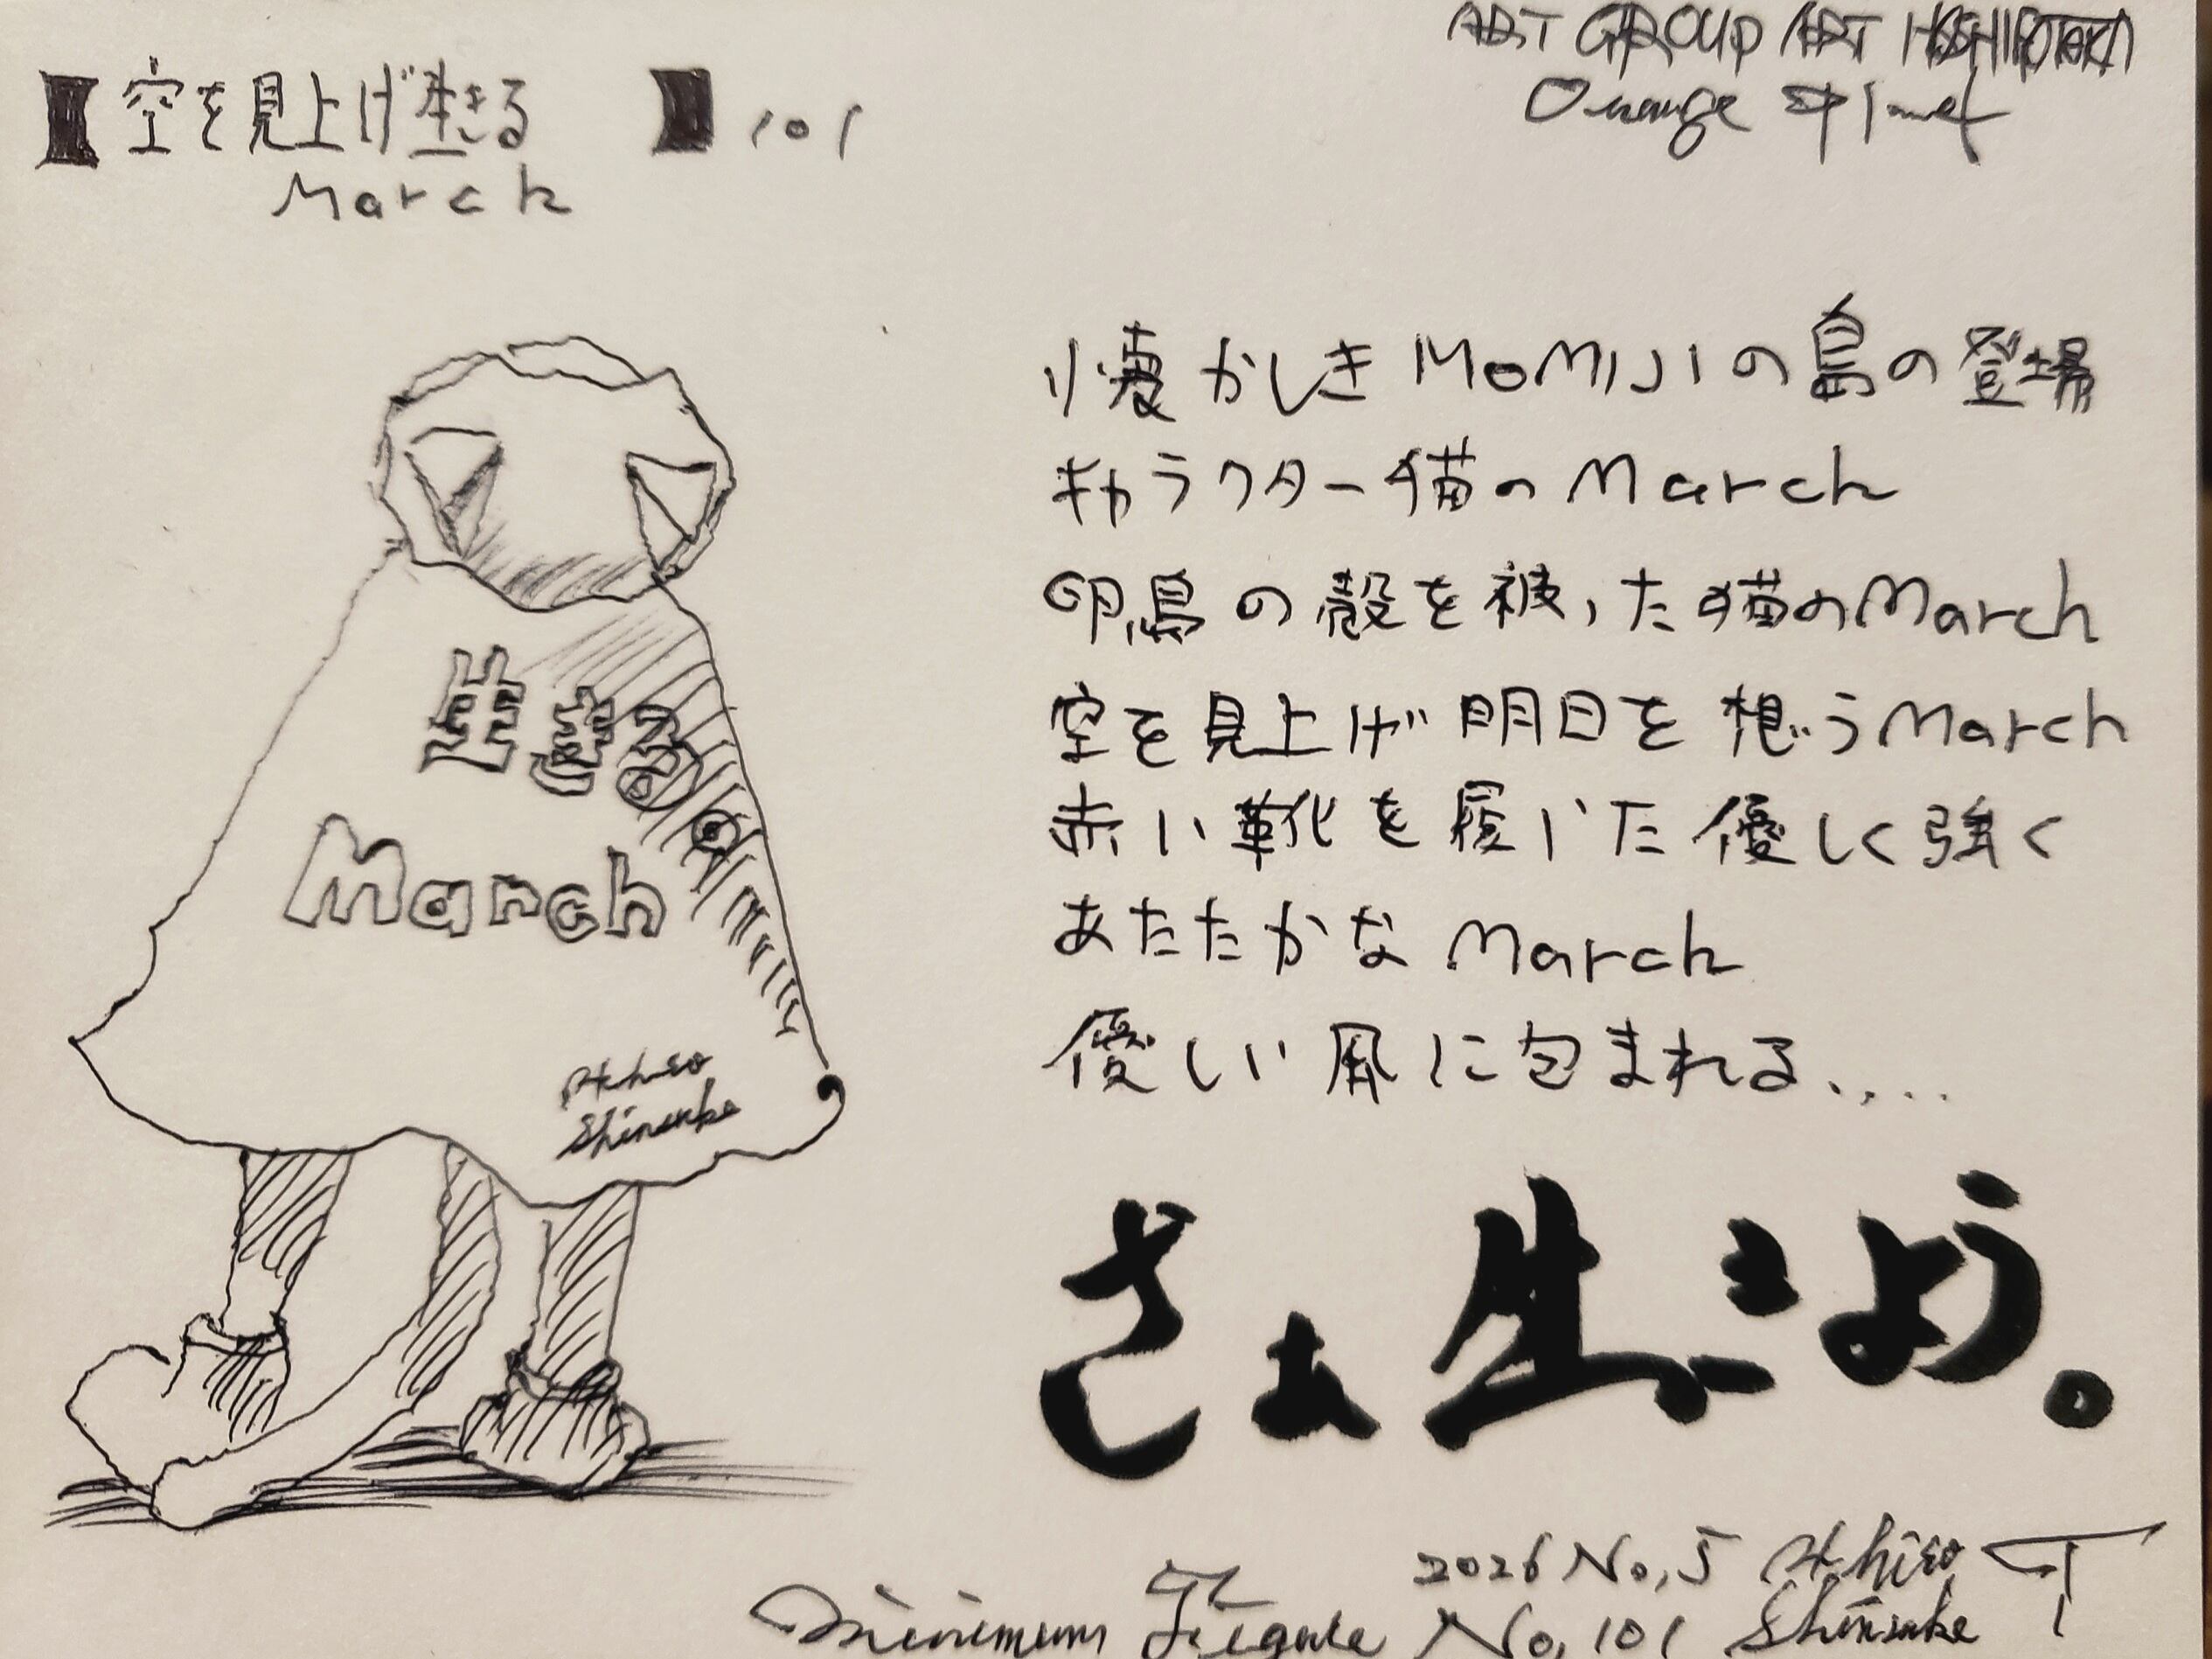 【空を見上げ生きる　】101
March
ART GROUP ART HOSHIPOTEKI
Orange Planet
懐かしきMOMIJIの島の登場
キャラクター猫のMarch
卵鳥の殻を被った猫のMarch
空を見上げ明日を想うMarch
赤い靴を履いた優しく強く
あたたかなMarch
優しい風に包まれる....
生きる
March
Shinsuke
さぁ生きよう。
2026 No,5
Minimum Figure No,101 Shinsuke